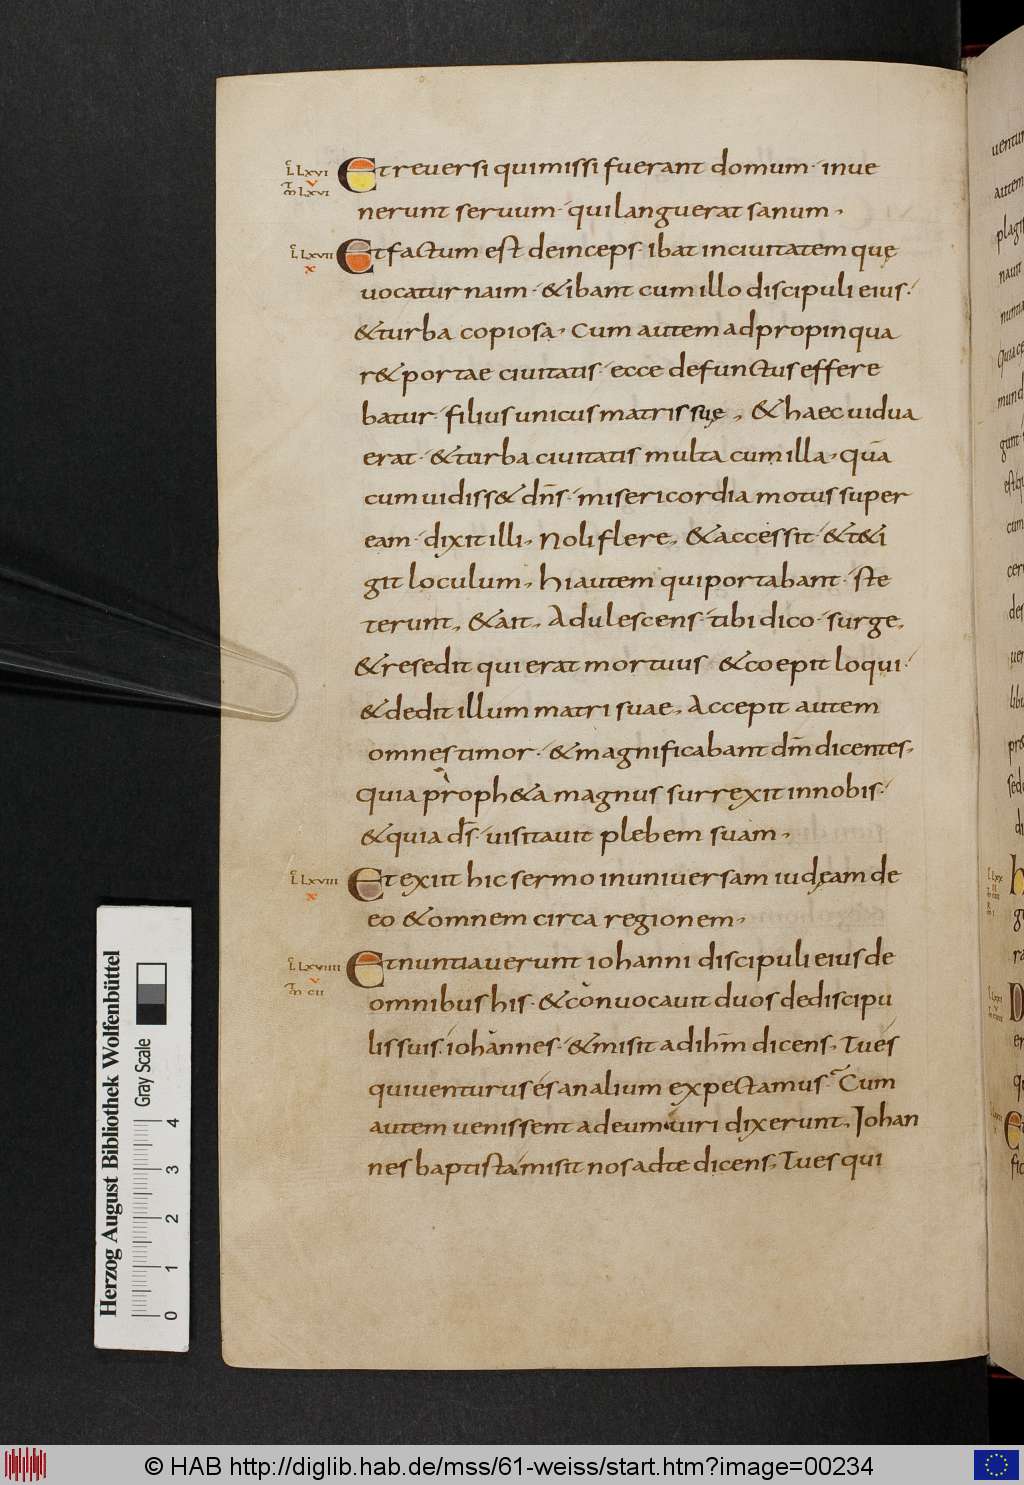 L LXVI
M LXVI
Et reversi qui missi fuerant domum· inve
nerunt servum· qui languerat sanum,
L LXVII
X
Et factum est deinceps· ibat in civitatem quę
vocatur naim· & ibant cum illo discipuli eius·
& turba copiosa, Cum autem adpropinqua
r& portae civitatis· ecce defunctus effere
batur· filius unicus matris suę, & haec vidua
erat· & turba civitatis multa cum illa, quā
cum vidiss& dn̄s· misericordia motus super
eam· dixit illi, Noli flere, & accessit· & t&i
git loculum, hi autem qui portabant· ste
terunt, & ait, Adulescens· tibi dico· surge,
& resedit qui erat mortuus & coepit loqui·
& dedit illum matri suae, Accepit autem
omnes timor· & magnificabant dm̄ dicentes,
Quia proph&a magnus surrexit in nobis·
& quia ds̄· visitavit plebem suam,
L LXVIII
X
Et exiit hic sermo in universam iudęam de
eo & omnem circa regionem,
L LXVIIII
V
M CII
Et nuntiaverunt iohanni discipuli eius de
omnibus his· & convocavit duos de discipu
lis suis· iohannes· & misit ad ihm̄ dicens, Tu es
qui venturus es an alium expectamus? Cum
autem venissent ad eum viri dixerunt, Iohan
nes baptista misit nos ad te dicens, Tu es qui
Herzog August Bibliothek Wolfenbüttel
Gray Scale
0 1 2 3 4
© HAB http://diglib.hab.de/mss/61-weiss/start.htm?image=00234